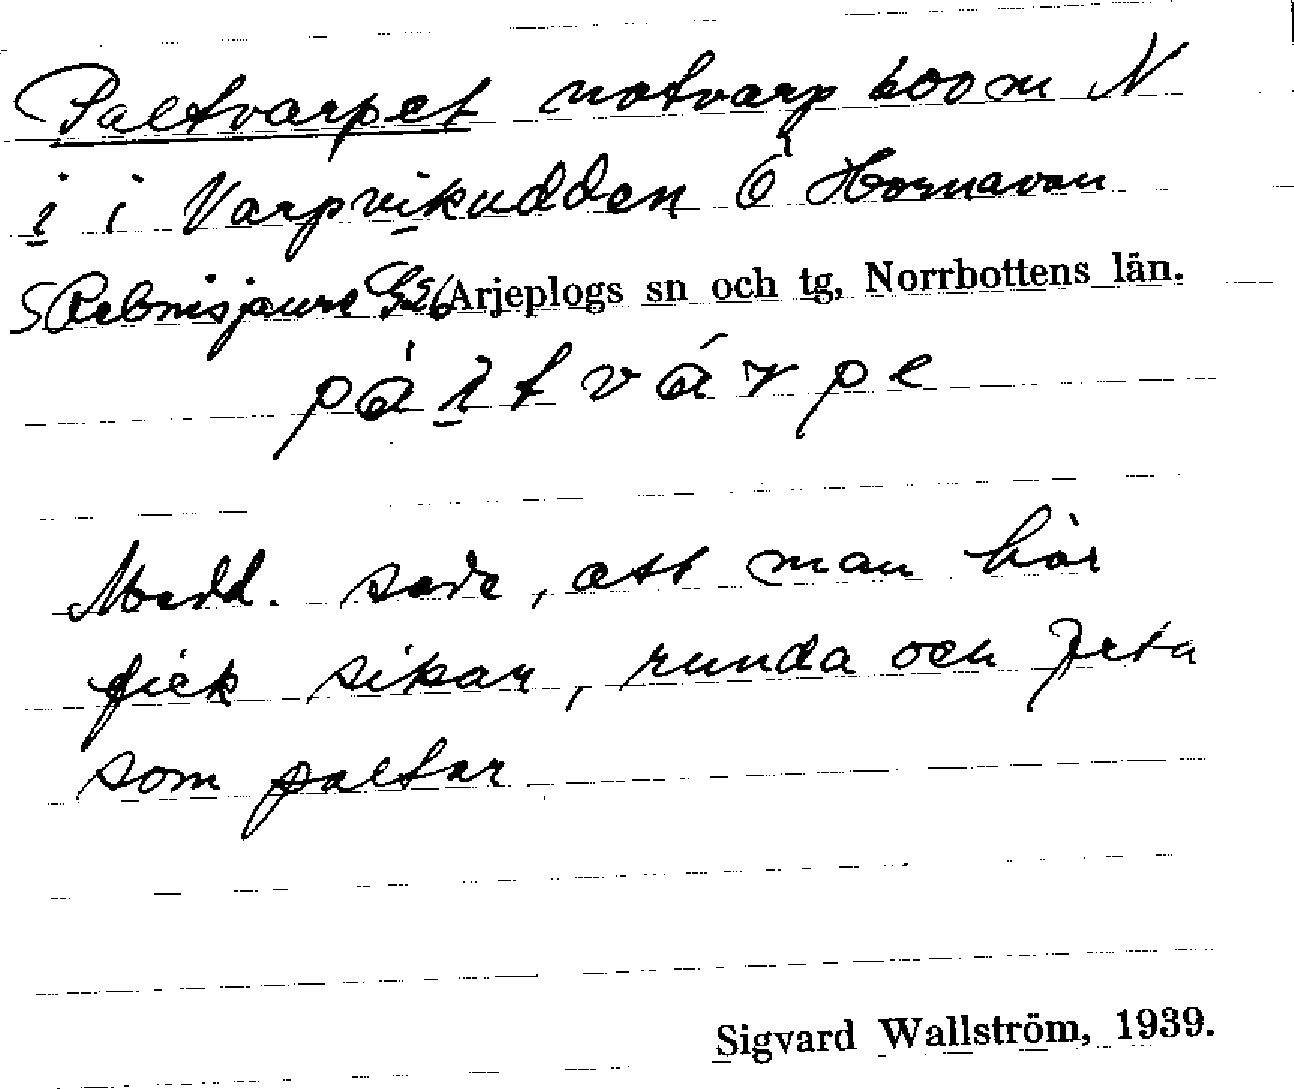 Paltvarpet notvarp 600 m N
i i Varpvikudden Ö Hornavan
S Rebnisjaure Arjeplogs sn och tg, Norrbottens län.
Medd. sade, att man här
fick sikar, runda och feta
som paltar
Sigvard Wallström, 1939.